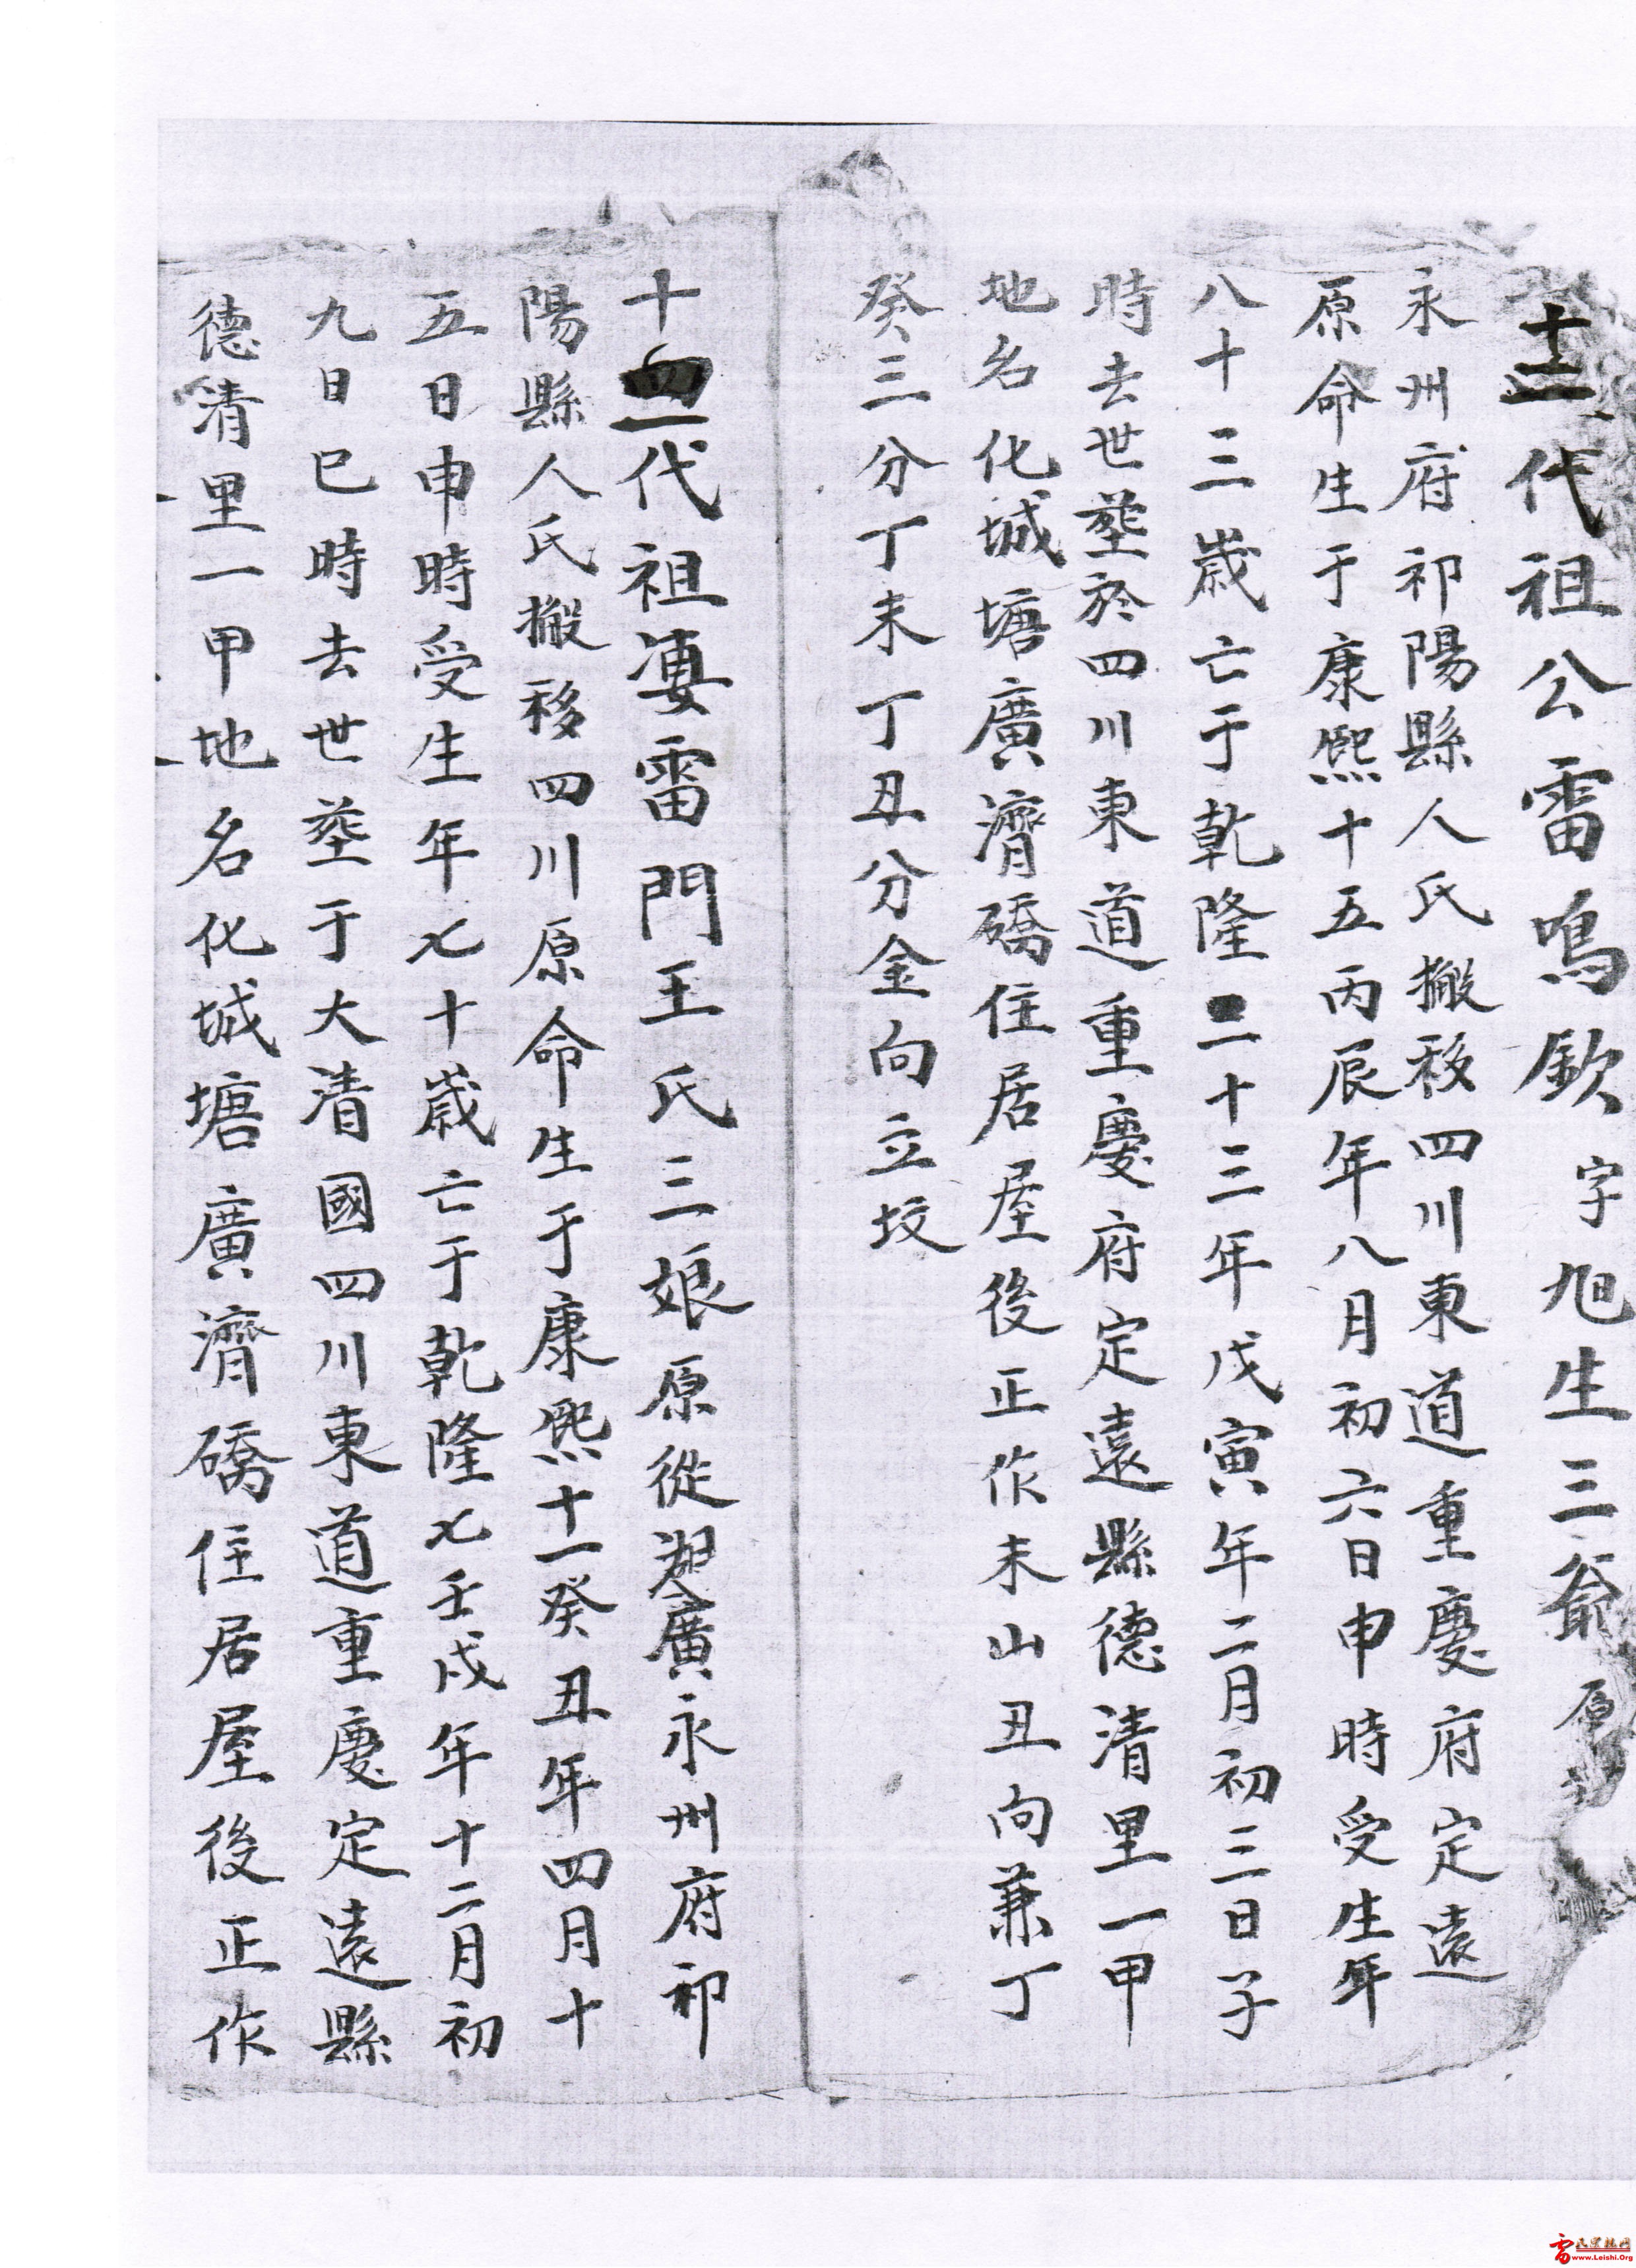 十二代祖公雷鳴欽字旭生三爺原
永州府祁陽縣人氏搬移四川東道重慶府定遠
原命生于康熙十五丙辰年八月初六日申時受生年
八十三歲亡于乾隆二十三年戊寅年二月初三日子
時去世塟於四川東道重慶府定遠縣德清里一甲
地名化城塘廣濟礄住居屋後正作未山丑向兼丁
癸三分丁未丁丑分金向立坟
十一代祖婆雷門王氏三娘原從湖廣永州府祁
陽縣人氏搬移四川原命生于康熙十一癸丑年四月十
五日申時受生年七十歲亡于乾隆七壬戌年十二月初
九日巳時去世塟于大清國四川東道重慶定遠縣
德清里一甲地名化城塘廣濟礄住居屋後正作
雷
www.Leishi.Org